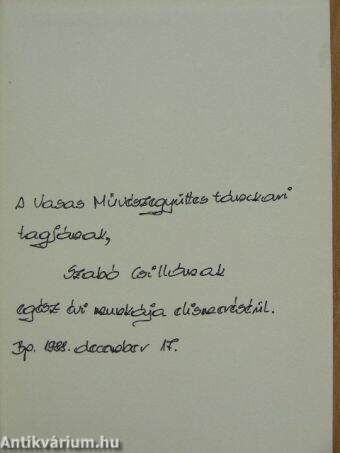 A Vasas Művészegyüttes tánckari
tagjának,
Szabó Csillának
egész évi munkája elismeréséül.
Bp. 1988. december 17.
Antikvárium.hu